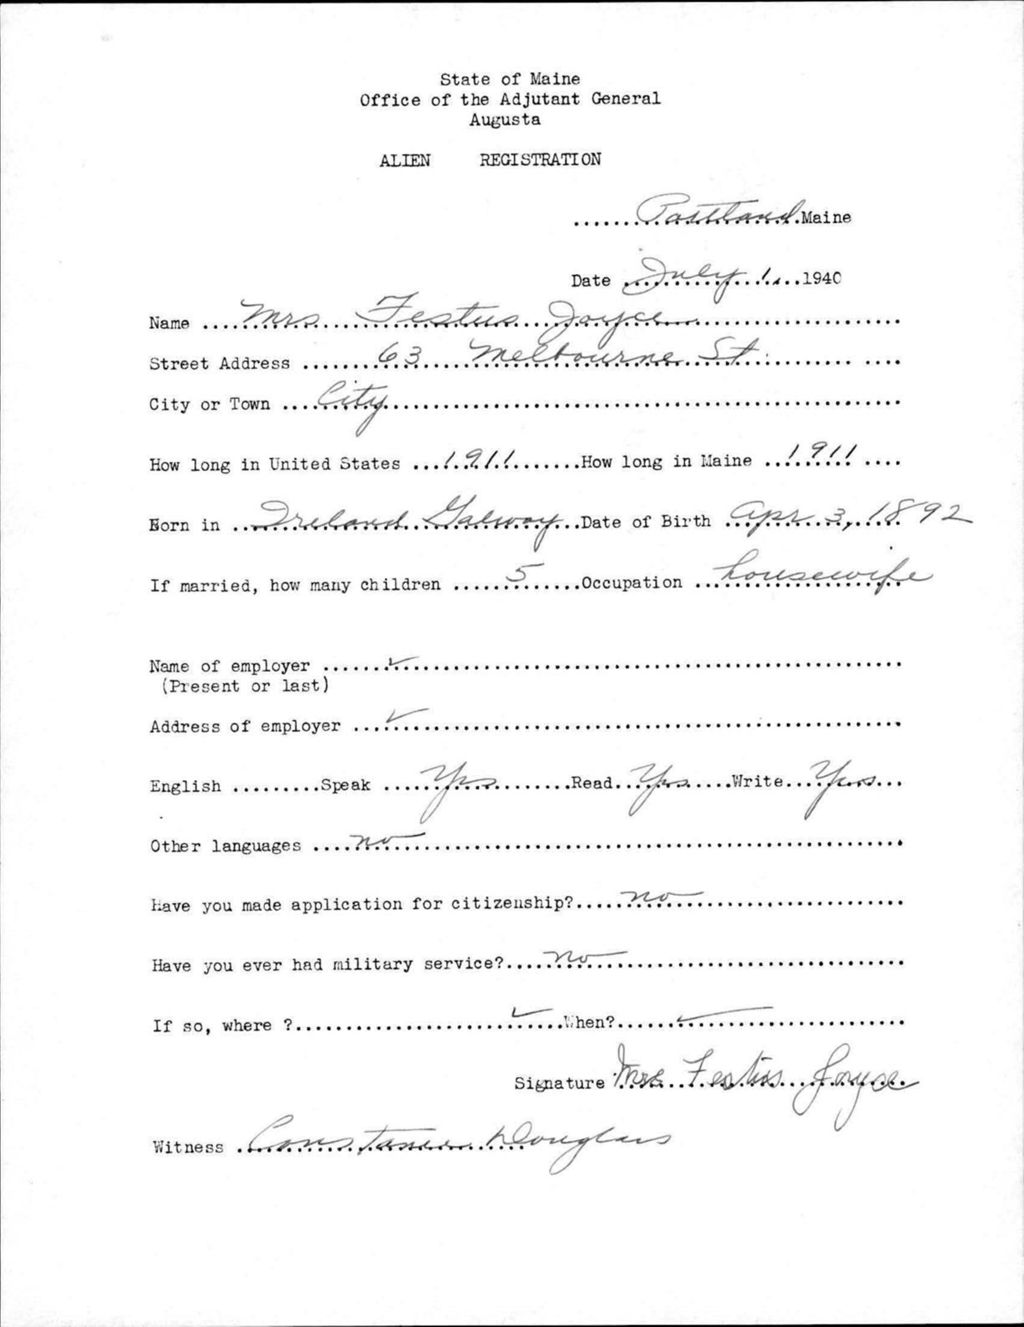 State of Maine
Office of the Adjutant General
Augusta
ALIEN REGISTRATION
Portland Maine
Date July 1, 1940
Name Mrs Festus Joyce
Street Address 63 Melbourne St.
City or Town City
How long in United States 1911 How long in Maine 1911
Born in Ireland Galway Date of Birth Apr 3, 1892
If married, how many children 5 Occupation housewife
Name of employer ✓
(Present or last)
Address of employer ✓
English Speak Yes Read Yes Write Yes
Other languages no
Have you made application for citizenship? no
Have you ever had military service? no
If so, where ? ✓ When? ✓
Signature Mrs Festus Joyce
Witness Constance Douglass